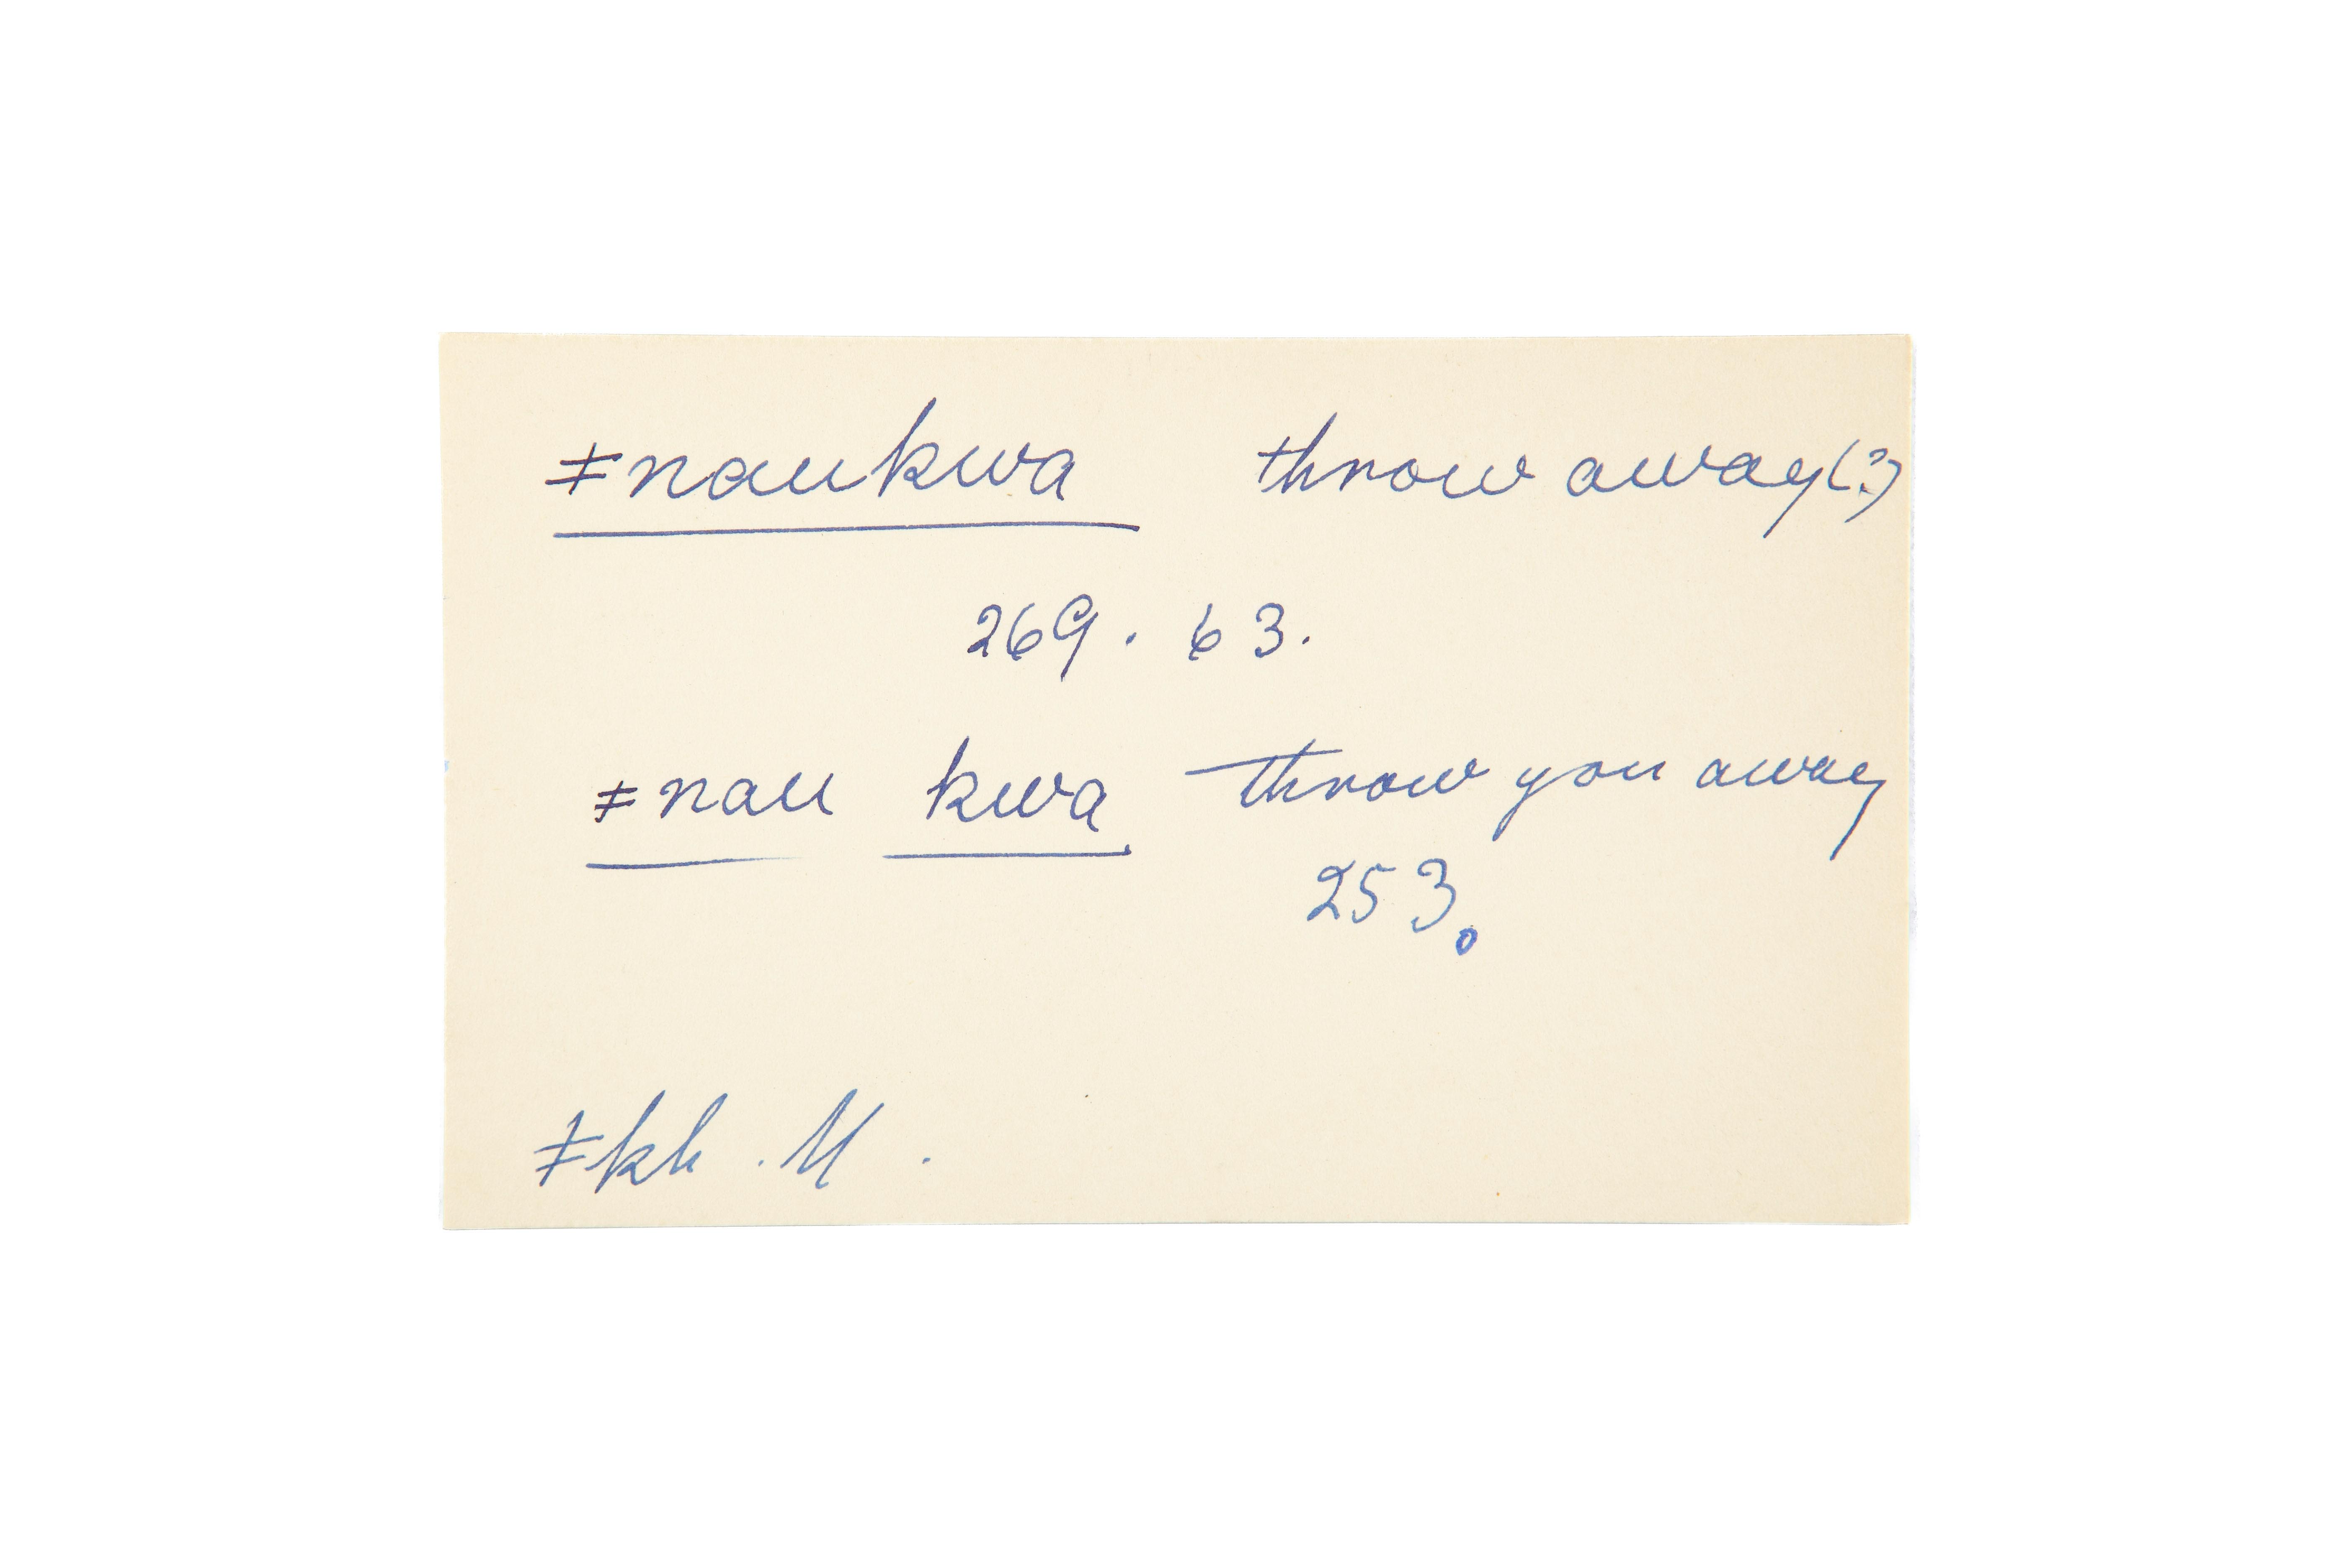 ǂnaukwa throw away (?)
269. 63.
ǂnau kwa throw you away
253.
ǂkh. M.